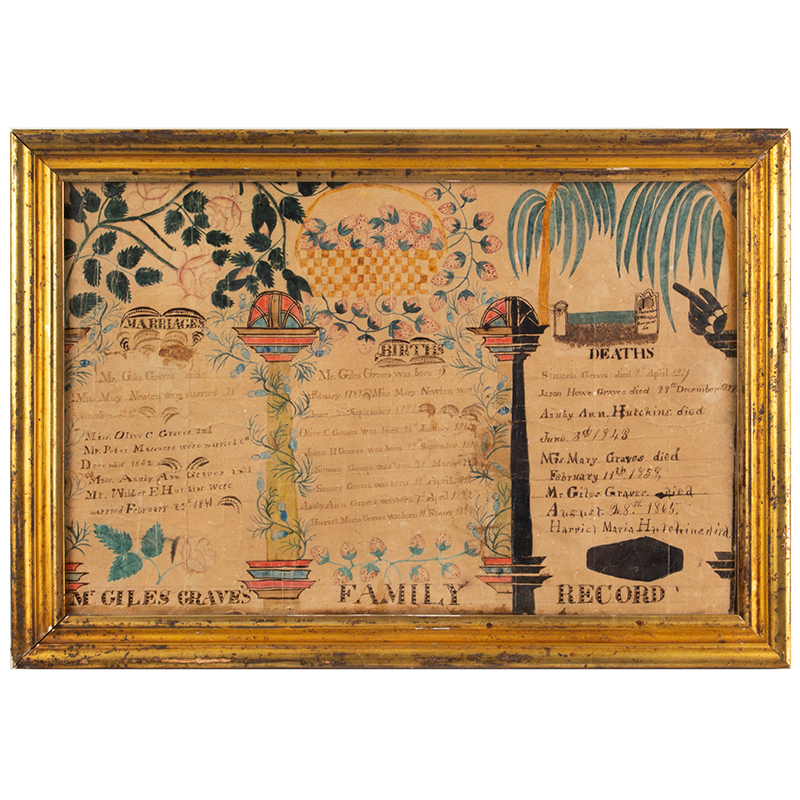 MARRIAGES
Mr. Giles Graves and
Miss Mary Newton were married
Miss. Olive C Graves and
Mr. Peter were married
December 1832
Miss. Azuby Ann Graves and
Mr. Wilder E Hutchins were
married February 22d 1841
BIRTHS
Mr. Giles Graves was born
February Miss Mary Newton was
born September 1792
Olive C. Graves was born January
Jason H Graves was born September
Simeon Graves was born March
Simeon Graves was born April
Azuby Ann Graves was born April 1822
Harriet Maria Graves was born
DEATHS
Simeon Graves died April
Jason Howe Graves died 29th December
Azuby Ann. Hutchins. died
June. 3d 1843
Mrs Mary. Graves. died
February 11th 1858,
Mr Giles Graves. died
August. 28th 1865,
Harriet Maria Hutchins. died.
Mr GILES GRAVES FAMILY RECORD